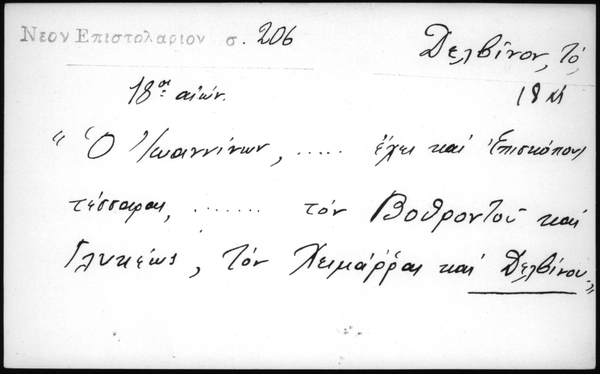 Νεον Επιστολαριον σ. 206
Δελβῖνον, τό
18ος αἰών.
18 Μ
"Ὁ Ἰωαννίνων, ..... ἔχει καί Ἐπισκόπους
τέσσαρας, ....... τόν Βοθροντοῦ καί
Γλυκέως, τόν Χειμάρρας καί Δελβίνου."